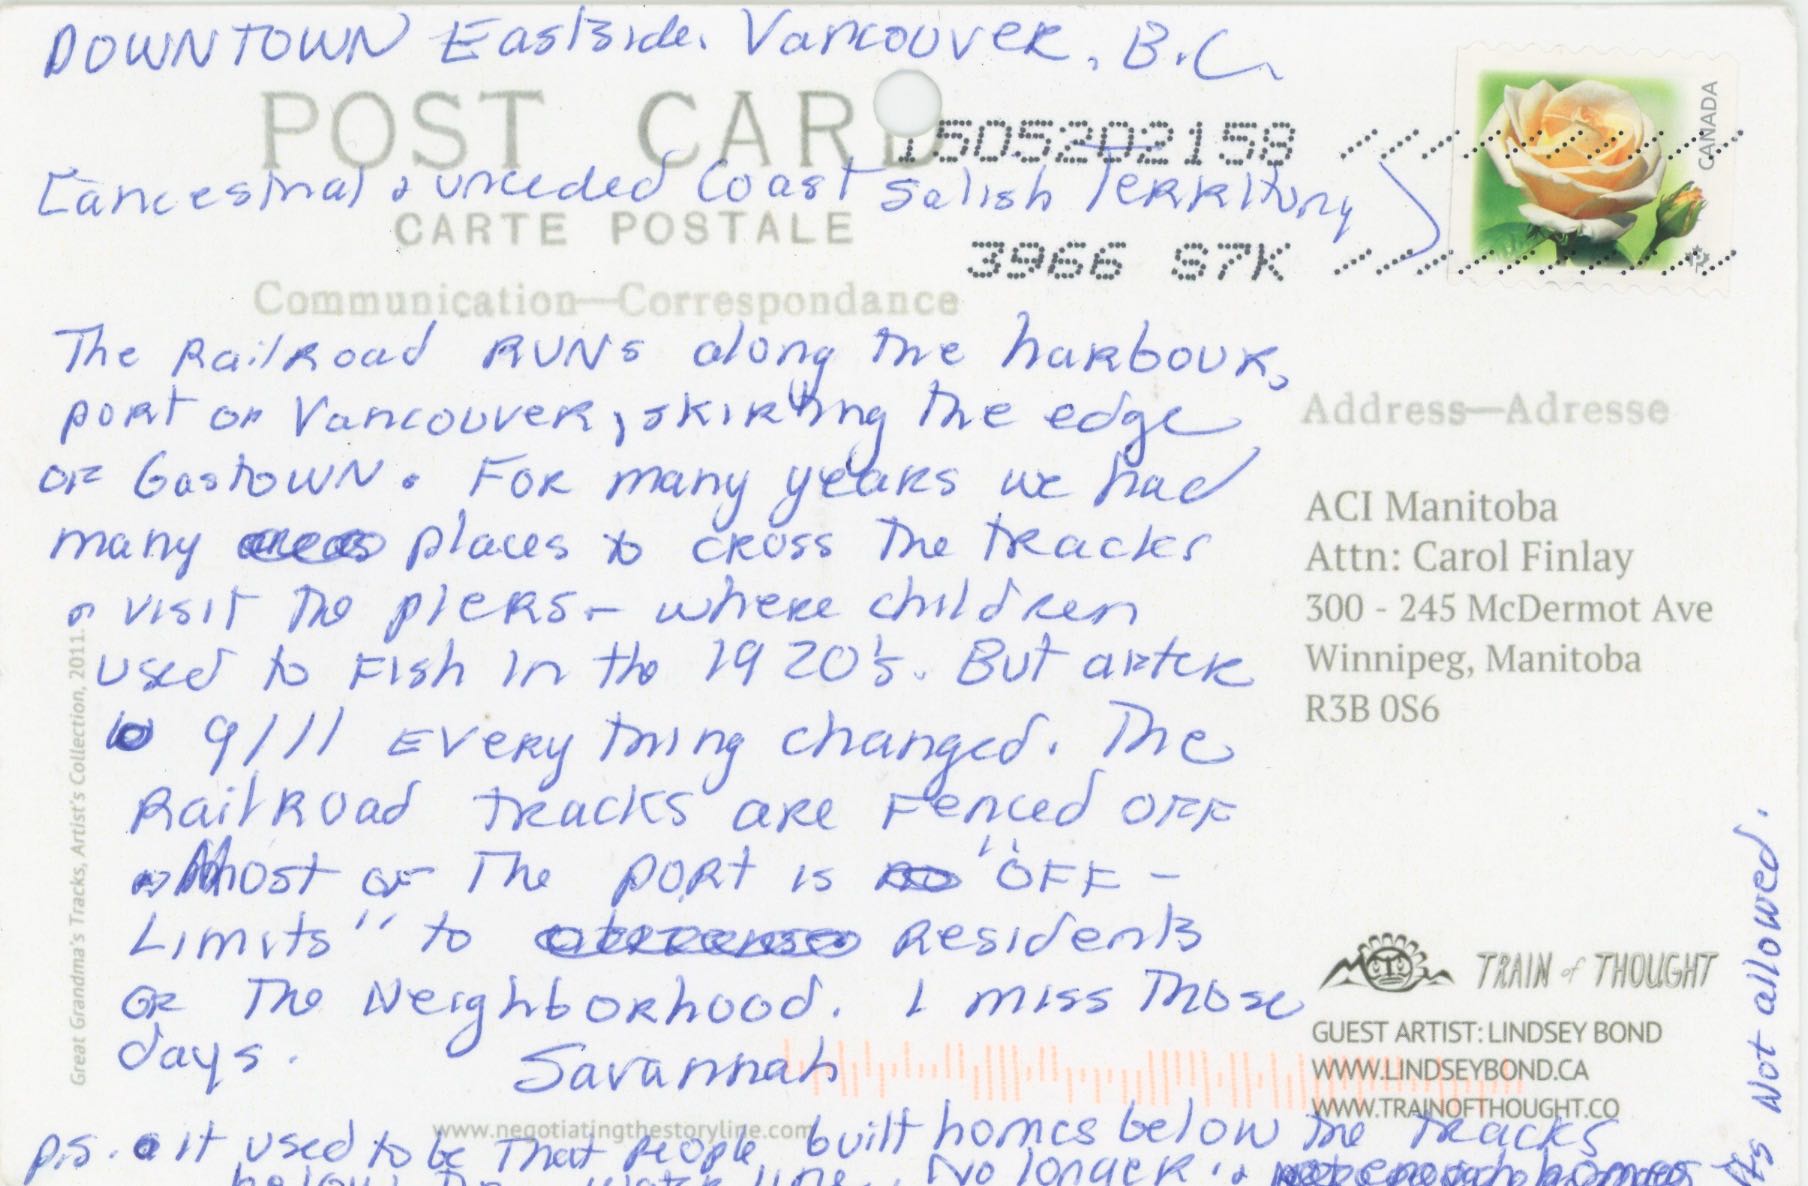 DOWNTOWN Eastside. Vancouver, B.C.
POST CARD
1505202158
[ancestral & unceded Coast Salish Territory]
CARTE POSTALE
3966 S7K
CANADA
P
Communication—Correspondance
The Railroad runs along the harbour,
port of Vancouver, skirting the edge
of Gastown. For many years we had
many places to cross the tracks
& visit the piers - where children
used to fish in the 1920's. But after
9/11 everything changed. The
Railroad tracks are fenced off
& Most of the port is "off-
Limits" to residents
of the Neighborhood. I miss those
days.
Savannah
p.s. it used to be that people built homes below the tracks
below the water line. No longer
its not allowed.
Address—Adresse
ACI Manitoba
Attn: Carol Finlay
300 - 245 McDermot Ave
Winnipeg, Manitoba
R3B 0S6
TRAIN of THOUGHT
GUEST ARTIST: LINDSEY BOND
WWW.LINDSEYBOND.CA
WWW.TRAINOFTHOUGHT.CO
www.negotiatingthestoryline.com
Great Grandma's Tracks, Artist's Collection, 2011.